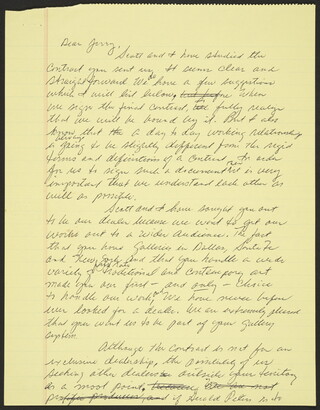 Dear Jerry,
Scott and I have studied the
contract you sent us. It seems clear and
straightforward. We do have a few suggestions
which I will list below. When
we sign the final contract, we fully realize
that we will be bound by it. But I also
know that the a day to day working relationship
is going to be slightly different from the rigid
forms and definitions of a contract. In order
for us to sign such a document then it is very
important that we understand each other as
well as possible.
Scott and I have sought you out
to be our dealer because we want to get our
works out to a wider audience. The fact
that you have Galleries in Dallas, Santa Fe
and New York and that you handle a wide
variety of traditional and contemporary art
made you our first - and only - choice
to handle our work. We have never before
ever looked for a dealer. We are extremely pleased
that you want us to be part of your Gallery
system.
Although the contract is not for an
exclusive dealership, the possibility of us
seeking other dealers outside your territory
is a moot point.
of Gerald Peters is so